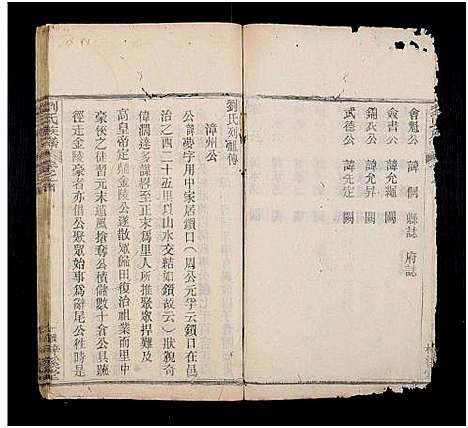 會魁公 諱侗 縣誌 府誌
僉書公 諱允繩 闕
錦衣公 諱允昇 闕
武德公 諱元定 闕
劉氏列祖傳
漳州公
公諱夢字用中家居鎖口（周公元孚云鎖口在邑
治之西二十五里以山水交結如鎖故云）狀貌奇
偉濶達多謀畧至正末爲里人所推聚眾捍難及
高皇帝定鼎金陵公遂散眾歸田復治祖業而里中
豪俠之徒習元末遺風搶奪公積儲數十倉公具疏
徑走金陵豪者亦借公聚眾始事爲辭尾公性時公
劉氏族譜